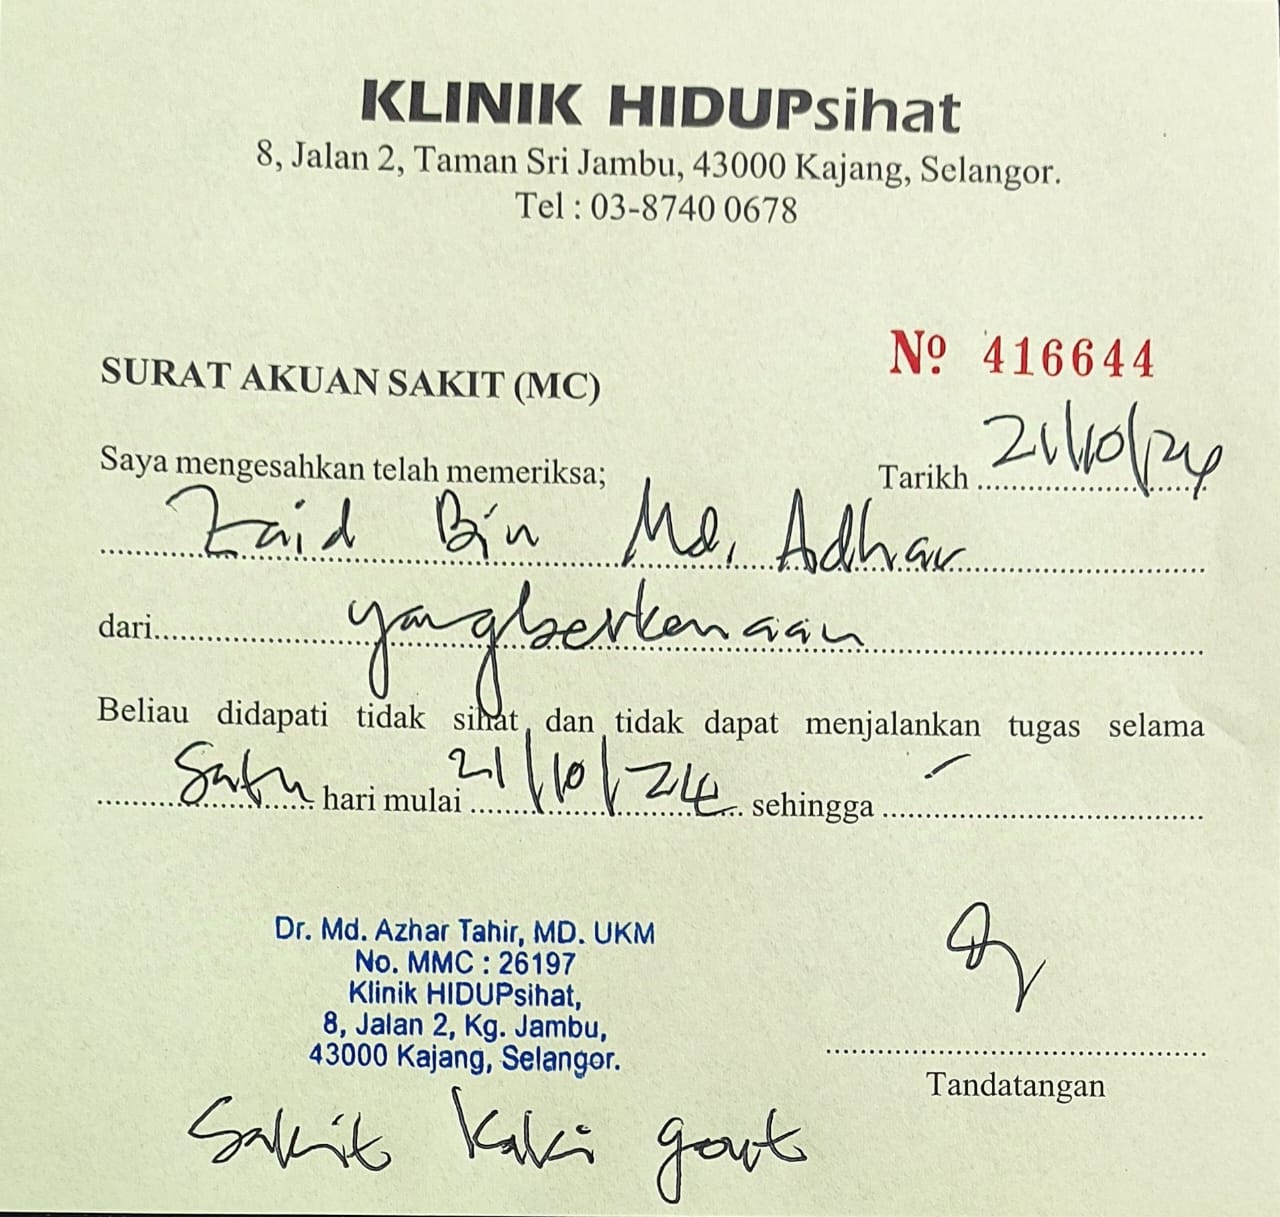 KLINIK HIDUPsihat
8, Jalan 2, Taman Sri Jambu, 43000 Kajang, Selangor.
Tel : 03-8740 0678
Nº 416644
SURAT AKUAN SAKIT (MC)
Saya mengesahkan telah memeriksa; Tarikh 21/10/24
Zaid Bin Md. Adhar
dari yangberkenaan
Beliau didapati tidak sihat dan tidak dapat menjalankan tugas selama
Satu hari mulai 21/10/24 sehingga -
Dr. Md. Azhar Tahir, MD. UKM
No. MMC : 26197
Klinik HIDUPsihat,
8, Jalan 2, Kg. Jambu,
43000 Kajang, Selangor.
Tandatangan
Sakit Kaki gout